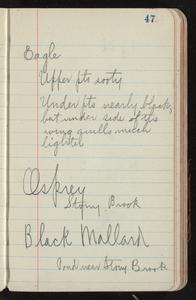 47
Eagle
Upper pts sooty
Under pts nearly black,
but under side of the
wing quills much
lighter
Osprey
Stony Brook
Black Mallard
Pond near Stony Brook